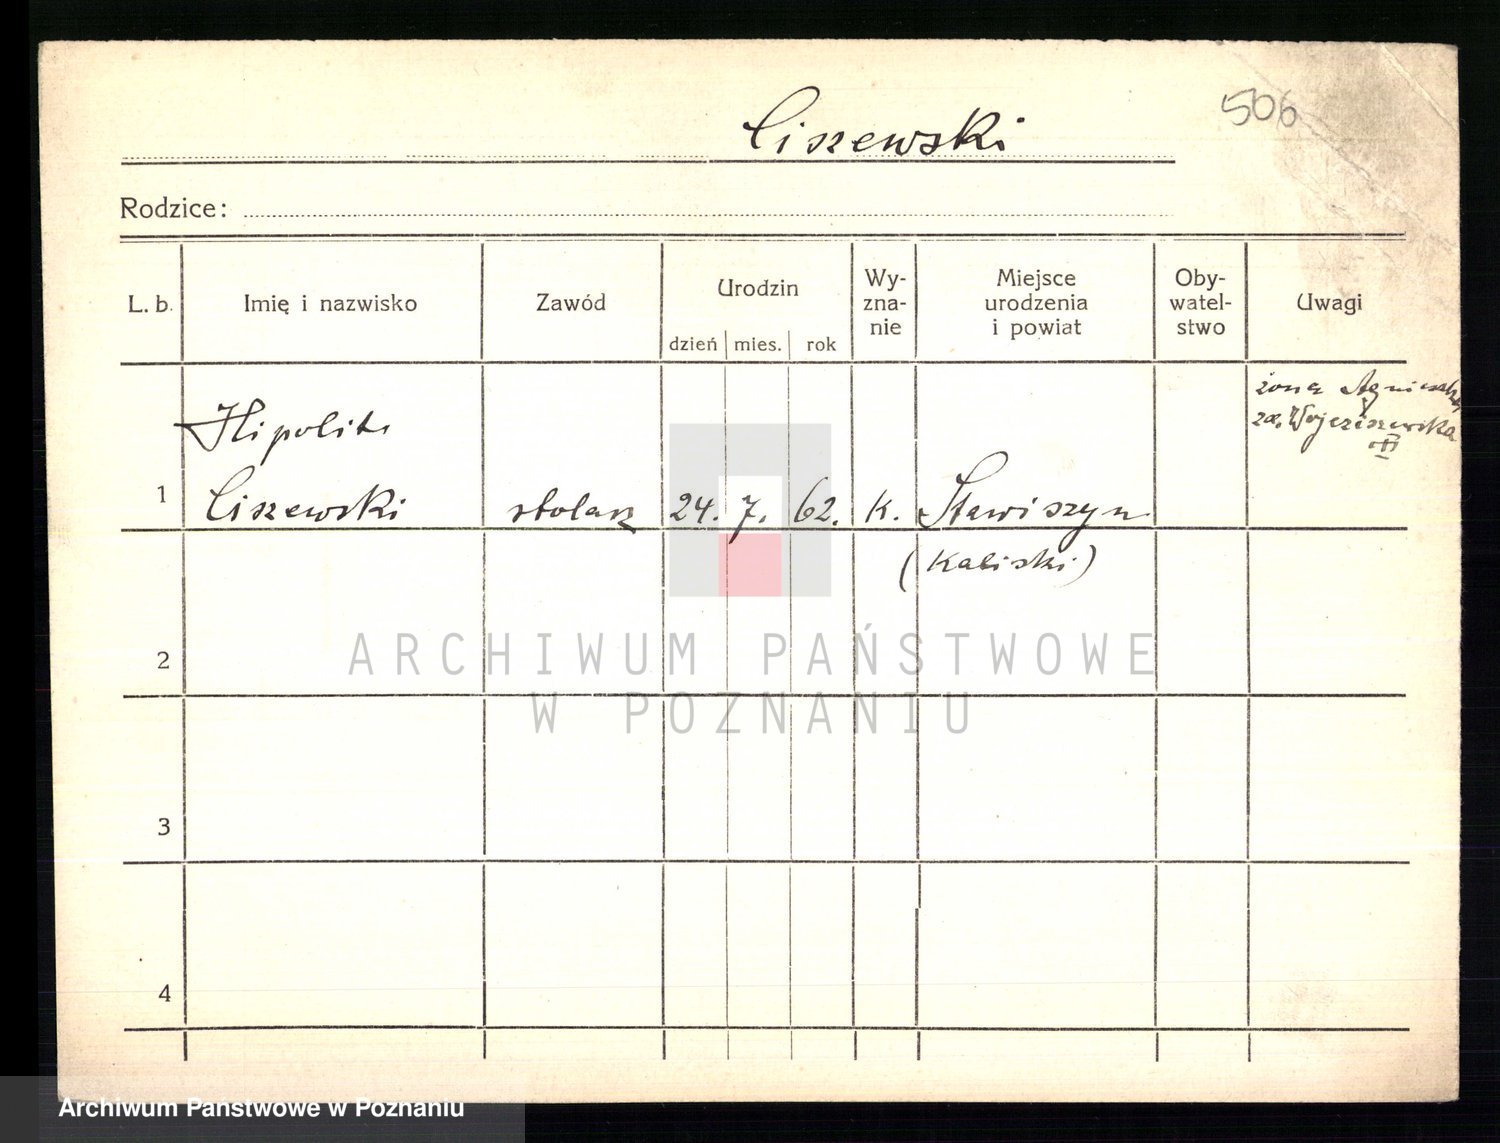 506
Ciszewski
Rodzice:
L. b. Imię i nazwisko Zawód Urodzin Wy-zna-nie Miejsce urodzenia i powiat Oby-watel-stwo Uwagi
dzień mies. rok
żona Agnieszka
Hipolit
zd. Wojciszewska
1 Ciszewski stolarz 24. 7. 62. K. Stawiszyn
(Kaliski)
2
ARCHIWUM PAŃSTWOWE
W POZNANIU
3
4
Archiwum Państwowe w Poznaniu